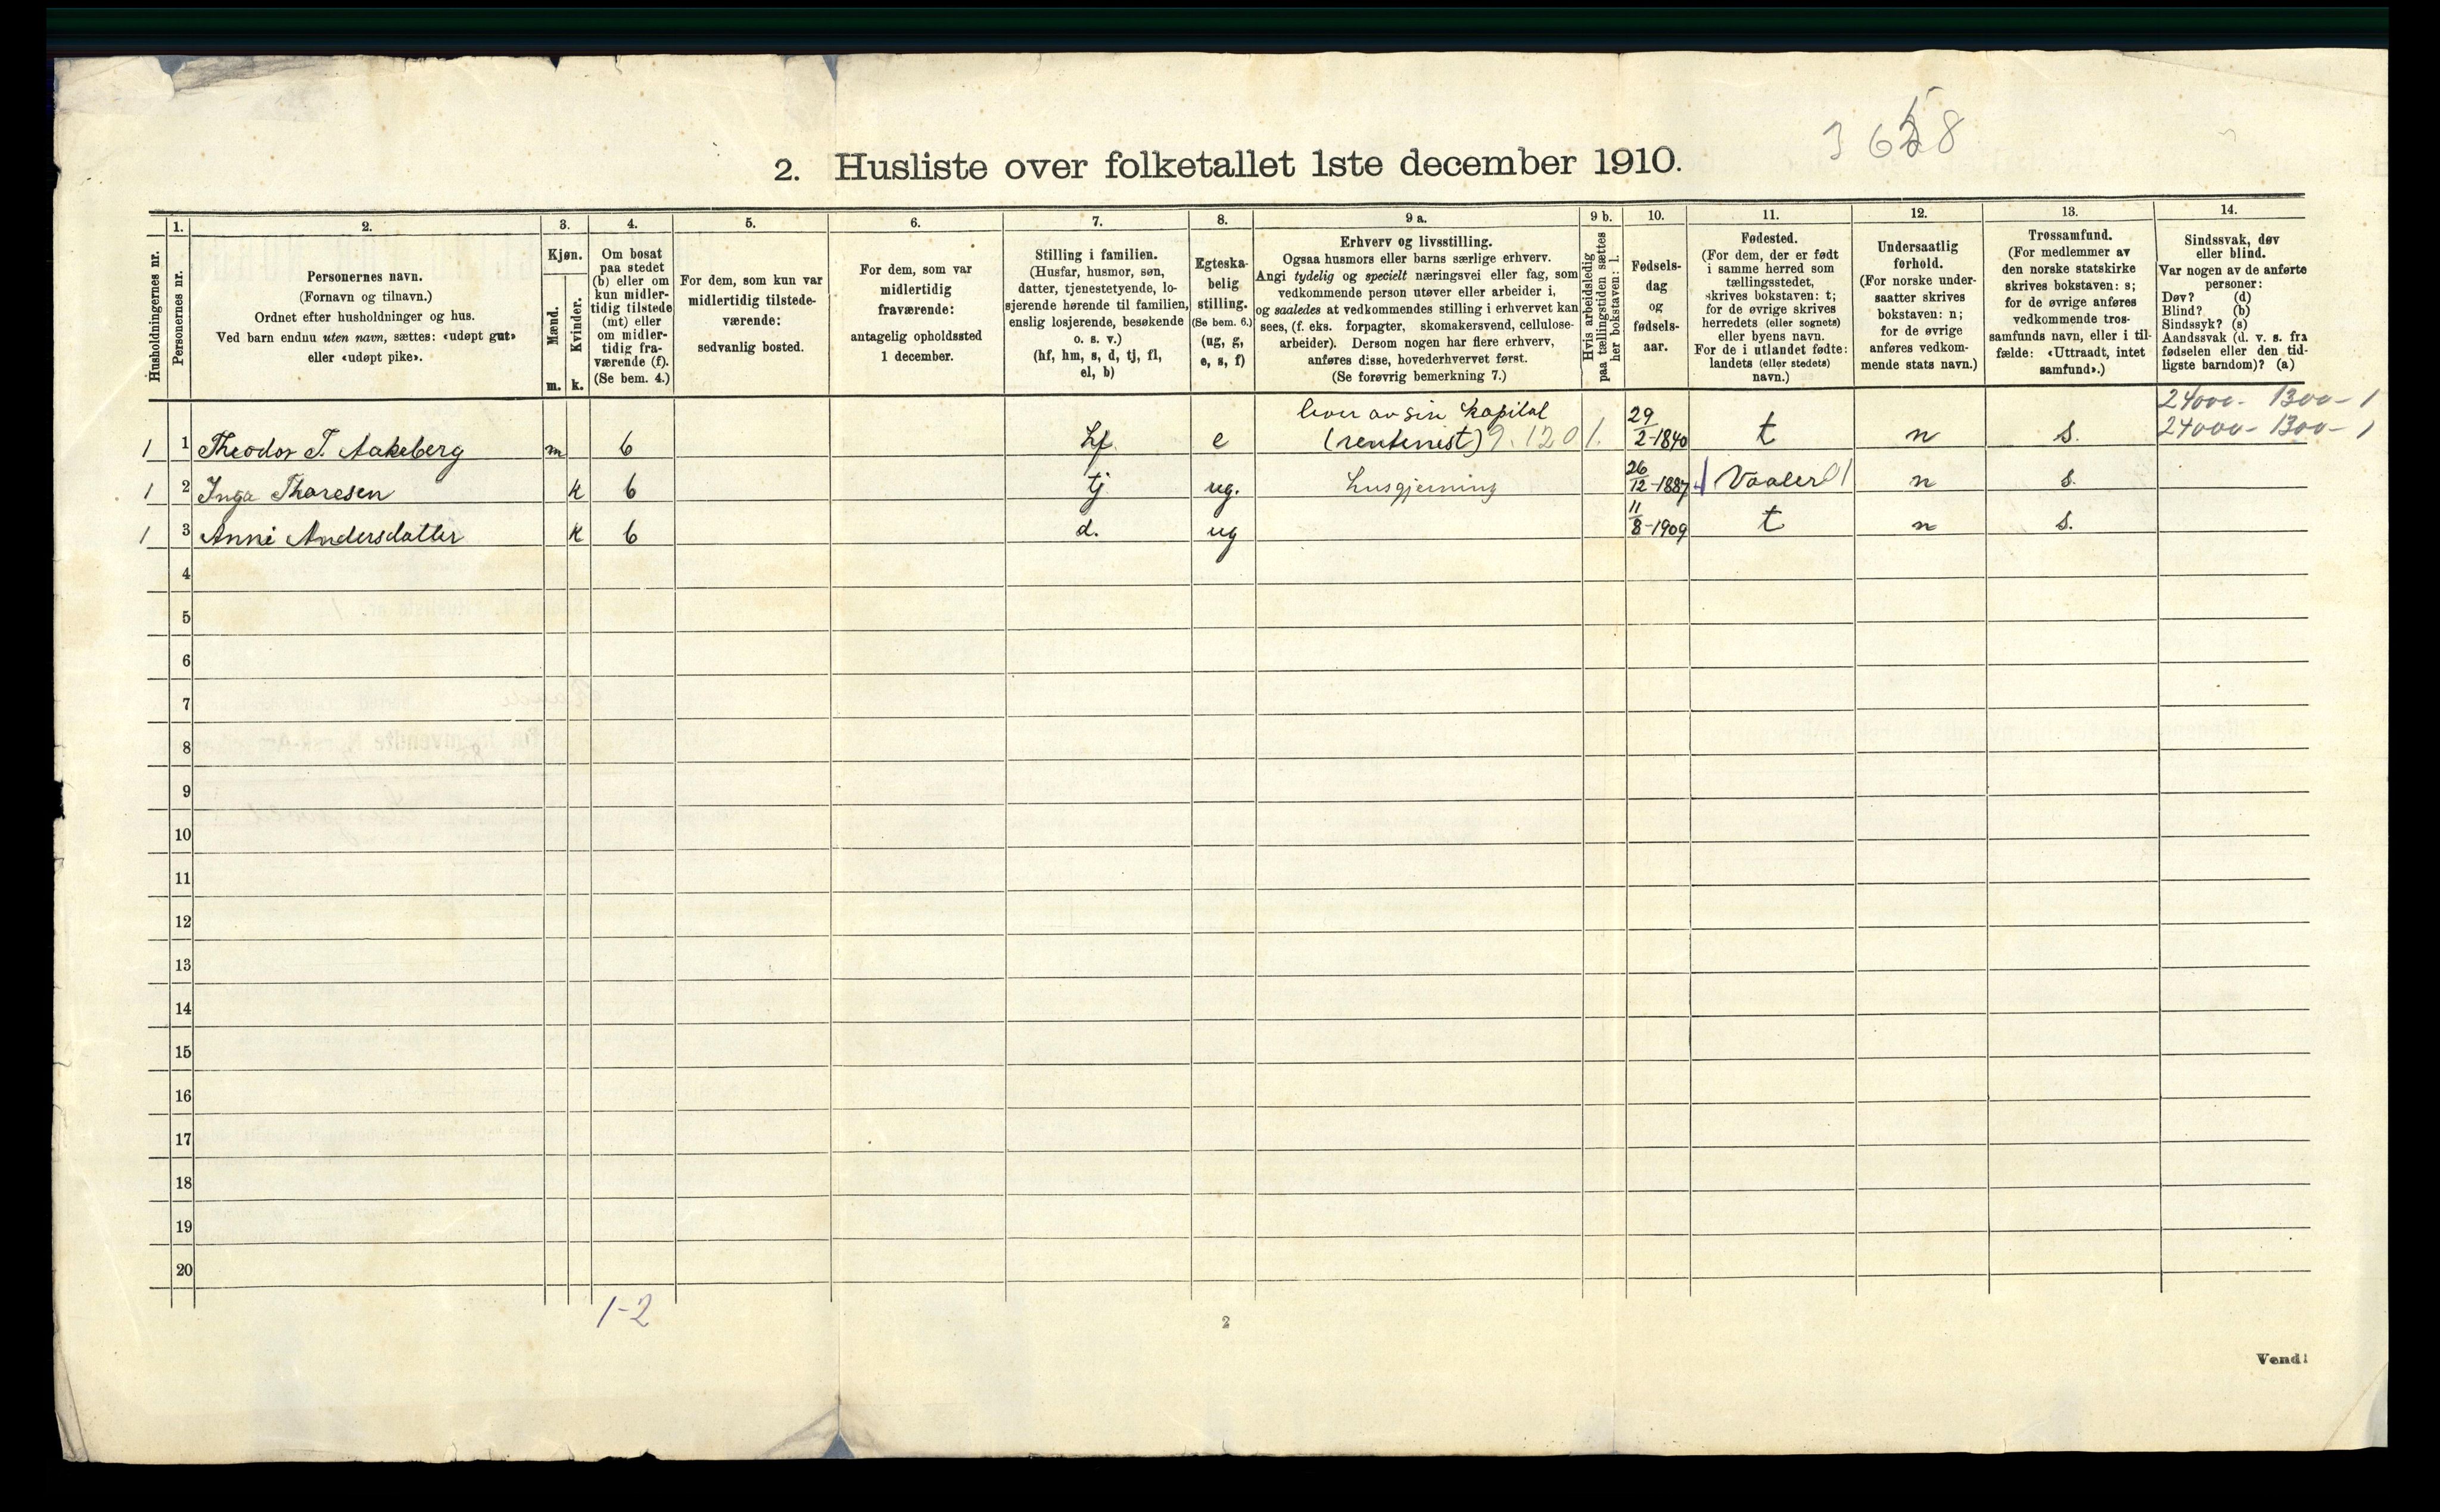 3658
2. Husliste over folketallet 1ste december 1910.
Husholdningernes nr.
1.
Personernes nr.
2.
Personernes navn.
(Fornavn og tilnavn.)
Ordnet efter husholdninger og hus.
Ved barn endnu uten navn, sættes: «udøpt gut»
eller «udøpt pike».
3.
Kjøn.
Mænd.
m.
Kvinder.
k.
4.
Om bosat
paa stedet
(b) eller om
kun midler-
tidig tilstede
(mt) eller
om midler-
tidig fra-
værende (f).
(Se bem. 4.)
5.
For dem, som kun var
midlertidig tilstede-
værende:
sedvanlig bosted.
6.
For dem, som var
midlertidig
fraværende:
antagelig opholdssted
1 december.
7.
Stilling i familien.
(Husfar, husmor, søn,
datter, tjenestetyende, lo-
sjerende hørende til familien,
enslig losjerende, besøkende
o. s. v.)
(hf, hm, s, d, tj, fl,
el, b)
8.
Egteska-
belig
stilling.
(Se bem. 6.)
(ug, g,
e, s, f)
9 a.
Erhverv og livsstilling.
Ogsaa husmors eller barns særlige erhverv.
Angi tydelig og specielt næringsvei eller fag, som
vedkommende person utøver eller arbeider i,
og saaledes at vedkommendes stilling i erhvervet kan
sees, (f. eks. forpagter, skomakersvend, cellulose-
arbeider). Dersom nogen har flere erhverv,
anføres disse, hovederhvervet først.
(Se forøvrig bemerkning 7.)
9 b.
Hvis arbeidsledig
paa tællingstiden sættes
her bokstaven: l.
10.
Fødsels-
dag
og
fødsels-
aar.
11.
Fødested.
(For dem, der er født
i samme herred som
tællingsstedet,
skrives bokstaven: t;
for de øvrige skrives
herredets (eller sognets)
eller byens navn.
For de i utlandet fødte:
landets (eller stedets)
navn.)
12.
Undersaatlig
forhold.
(For norske under-
saatter skrives
bokstaven: n;
for de øvrige
anføres vedkom-
mende stats navn.)
13.
Trossamfund.
(For medlemmer av
den norske statskirke
skrives bokstaven: s;
for de øvrige anføres
vedkommende tros-
samfunds navn, eller i til-
fælde: «Uttraadt, intet
samfund».)
14.
Sindssvak, døv
eller blind.
Var nogen av de anførte
personer:
Døv? (d)
Blind? (b)
Sindssyk? (s)
Aandssvak (d. v. s. fra
fødselen eller den tid-
ligste barndom)? (a)
lever av sin kapital 24000 - 1300 - 1
1 1 Theodor T. Aakeberg m b hf e (rentenist) 9.120 1. 29/2-1840 t n s. 24000 - 1300 - 1
1 2 Inga Thoresen k b tj ug. husgjerning 26/12-1887 Vaaler 01 n s.
1 3 Anne Andersdatter k b d. ug 11/8-1909 t n s.
4
5
6
7
8
9
10
11
12
13
14
15
16
17
18
19
20
1-2
2
Vend!